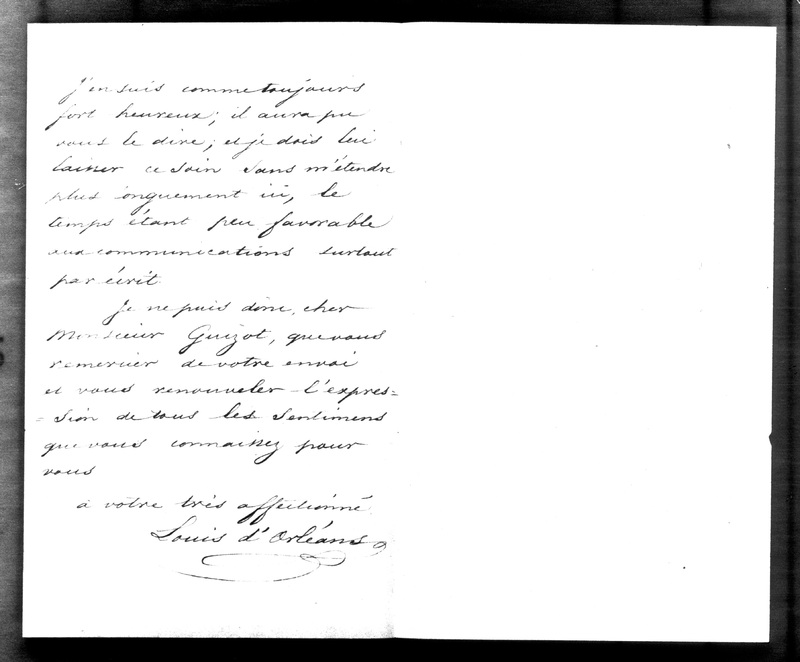 J'en suis comme toujours
fort heureux; il aura pu
vous le dire; et je dois lui
laisser ce soin sans m'étendre
plus longuement ici, le
temps étant peu favorable
aux communications surtout
par écrit.
Je ne puis donc, cher
Monsieur Guizot, que vous
remercier de votre envoi
et vous renouveler l'expres=
=sion de tous les sentimens
que vous connaissez pour
vous
à votre très affectionné
Louis d'Orléans